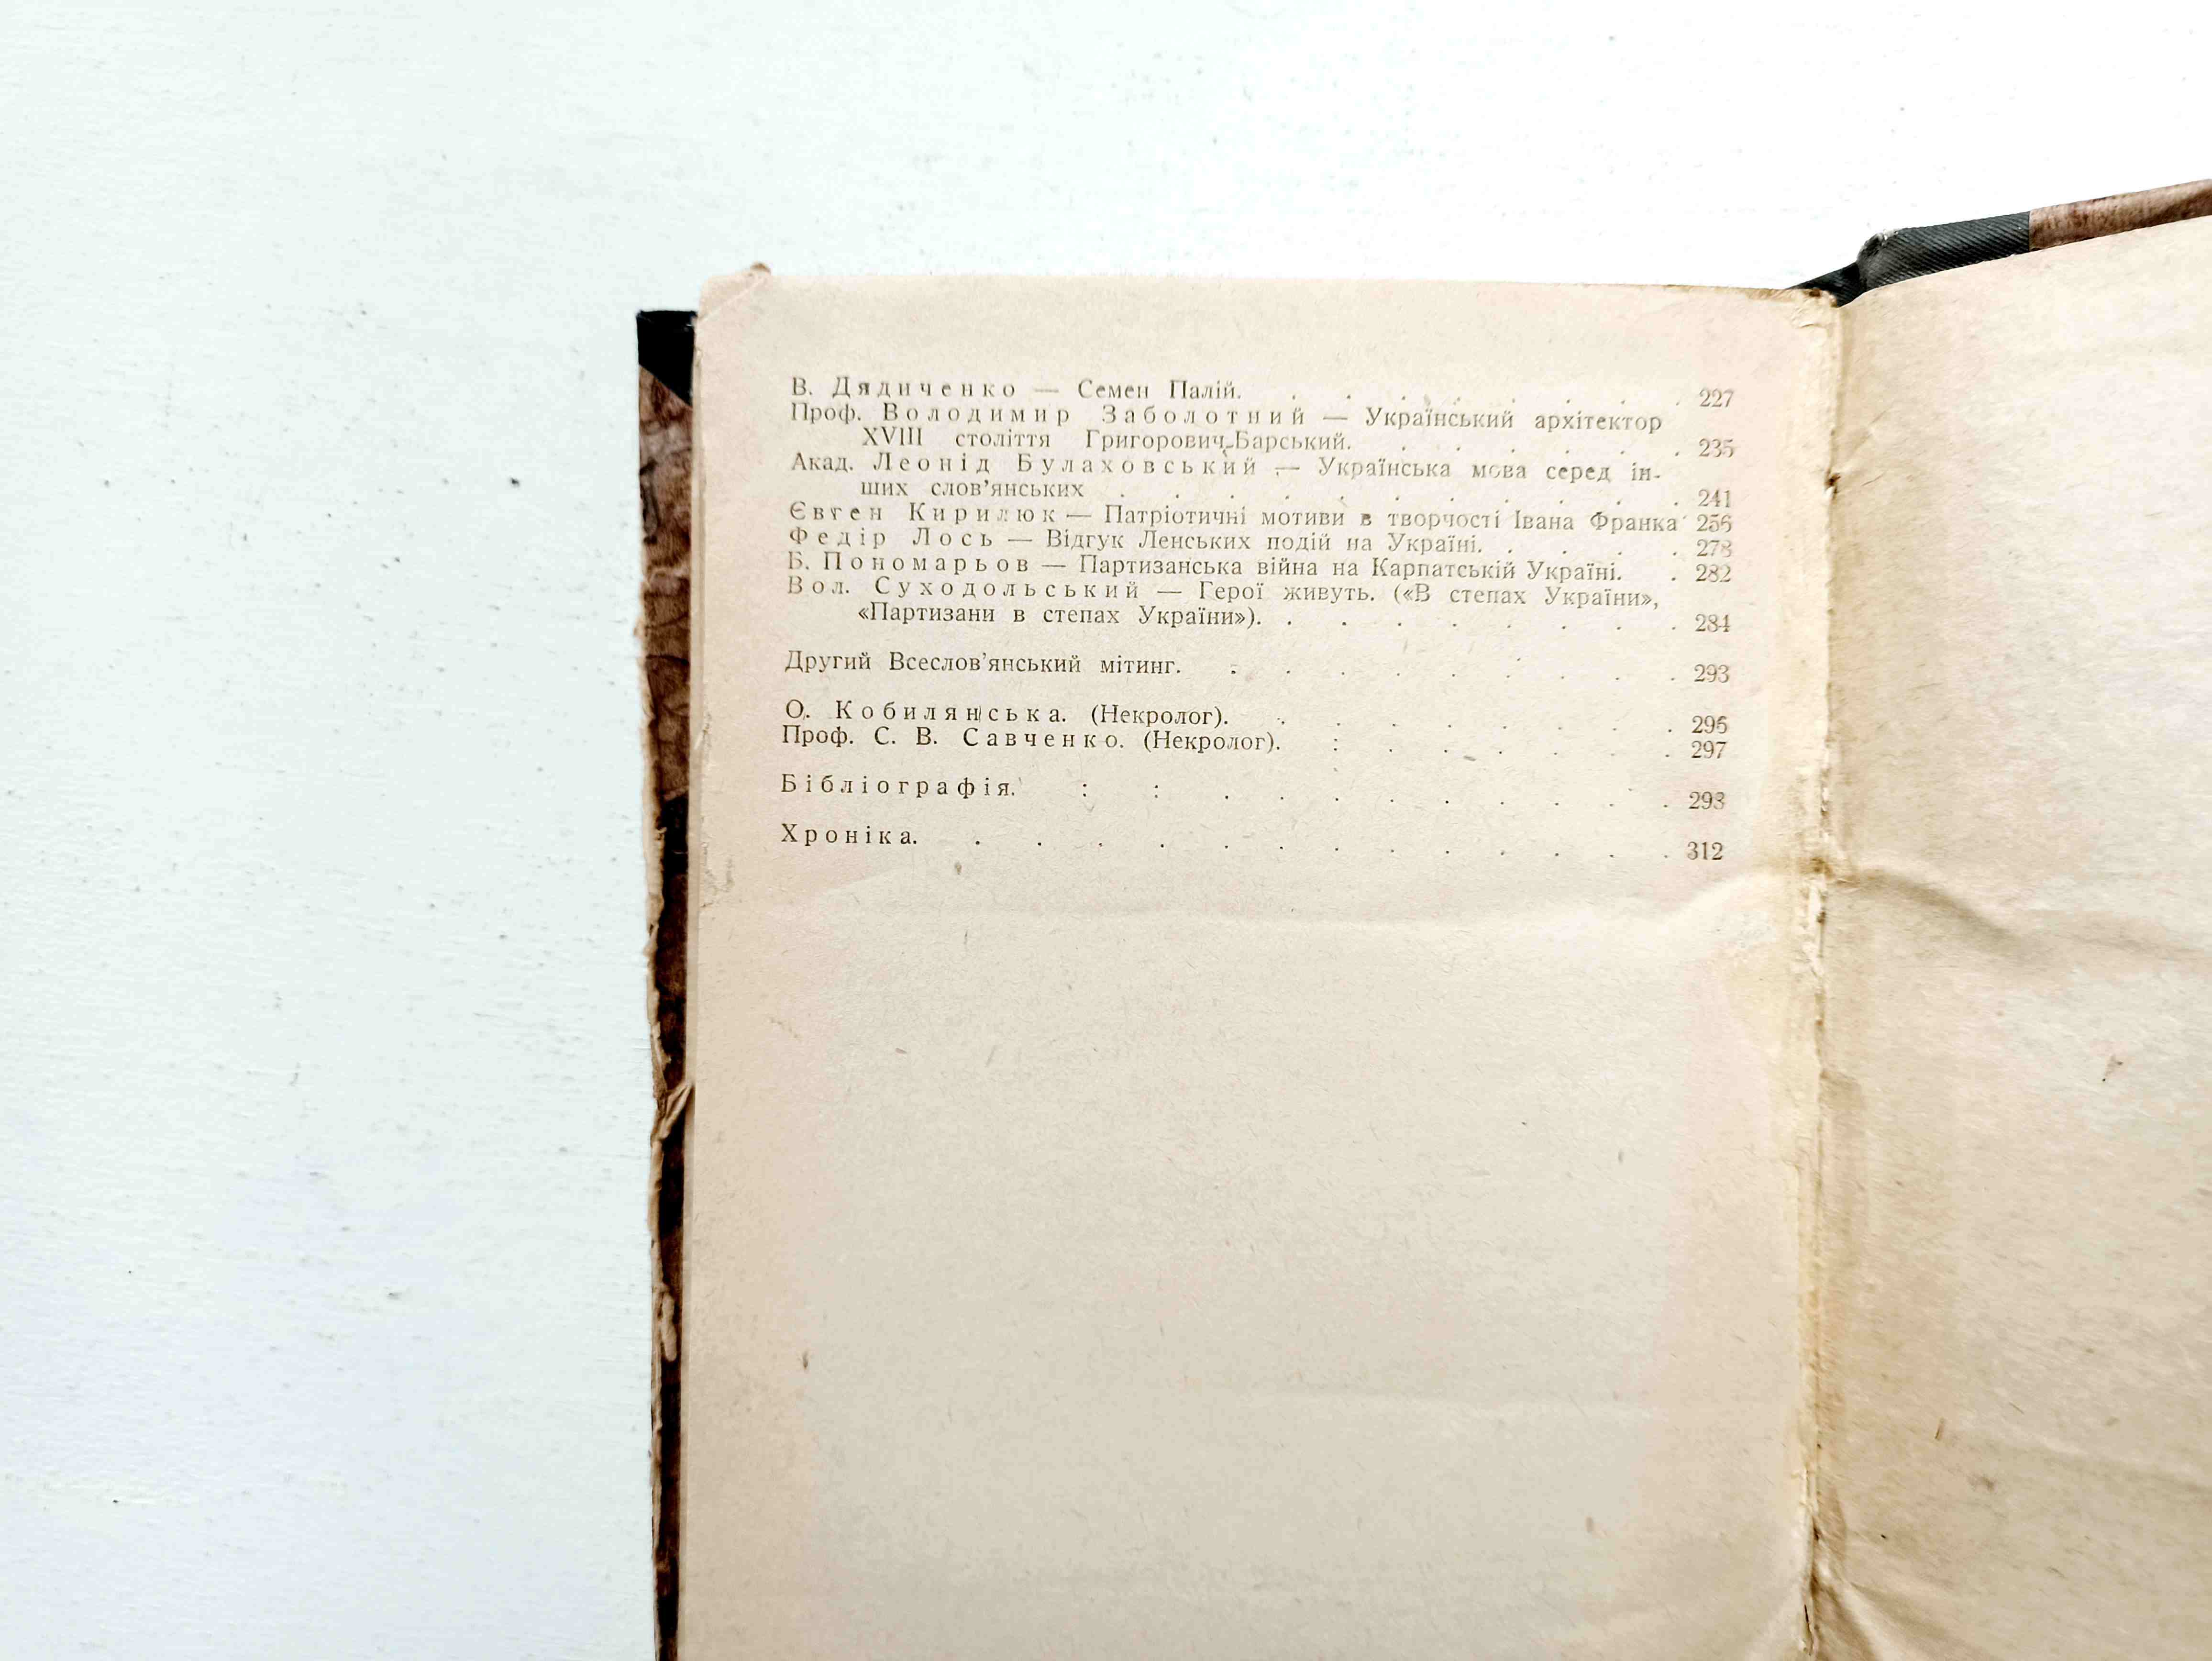 В. Дядиченко — Семен Палій. . . . . . . . 227
Проф. Володимир Заболотний — Український архітектор
XVIII століття Григорович-Барський. . . . . . . 235
Акад. Леонід Булаховський — Українська мова серед ін-
ших слов’янських . . . . . . . . . . . 241
Євген Кирилюк — Патріотичні мотиви в творчості Івана Франка 256
Федір Лось — Відгук Ленських подій на Україні. . . . . 278
Б. Пономарьов — Партизанська війна на Карпатській Україні. . 282
Вол. Суходольський — Герої живуть. («В степах України»,
«Партизани в степах України»). . . . . . . . . 284
Другий Всеслов’янський мітинг. . . . . . . . . . 293
О. Кобилянська. (Некролог). . . . . . . . . 296
Проф. С. В. Савченко. (Некролог). : . . . . . . 297
Бібліографія. : : . . . . . . . . . 298
Хроніка. . . . . . . . . . . . . . 312